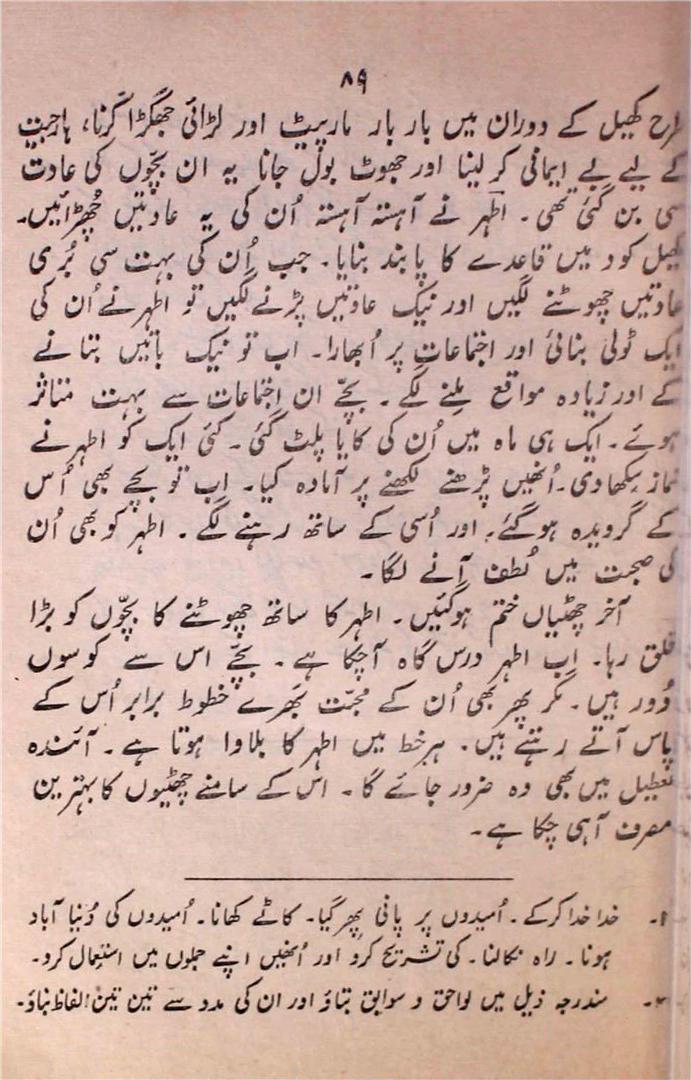 ۸۹
طرح کھیل کے دوران میں بار بار مارپیٹ اور لڑائی جھگڑا کرنا، ہارجیت
کے لیے بے ایمانی کر لینا اور جھوٹ بول جانا یہ ان بچّوں کی عادت
سی بن گئی تھی۔ اطہر نے آہستہ آہستہ اُن کی یہ عادتیں چُھڑائیں۔
کھیل کود میں قاعدے کا پابند بنایا۔ جب اُن کی بہت سی بُری
عادتیں چھوٹنے لگیں اور نیک عادتیں پڑنے لگیں تو اطہر نے اُن کی
ایک ٹولی بنائی اور اجتماعات پر اُبھارا۔ اب تو نیک باتیں بتانے
کے اور زیادہ مواقع مِلنے لگے۔ بچّے ان اجتماعات سے بہت متاثر
ہوئے۔ ایک ہی ماہ میں اُن کی کایا پلٹ گئی۔ کئی ایک کو اطہر نے
نماز سکھادی۔ اُنھیں پڑھنے لکھنے پر آمادہ کیا۔ اب تو بچے بھی اُس
کے گرویدہ ہوگئے۔ اور اُسی کے ساتھ رہنے لگے۔ اطہر کو بھی اُن
کی صحبت میں لُطف آنے لگا۔
آخر چھٹیاں ختم ہوگئیں۔ اطہر کا ساتھ چھوٹنے کا بچّوں کو بڑا
قلق رہا۔ اب اطہر درس گاہ آچکا ہے۔ بچّے اس سے کوسوں
دُور ہیں۔ مگر پھر بھی اُن کے محبّت بھرے خطوط برابر اُس کے
پاس آتے رہتے ہیں۔ ہر خط میں اطہر کا بلاوا ہوتا ہے۔ آئندہ
تعطیل میں بھی وہ ضرور جائے گا۔ اس کے سامنے چھٹیوں کا بہترین
مصرف آہی چکا ہے۔
۱۔ خدا خدا کرکے۔ اُمیدوں پر پانی پھر گیا۔ کاٹے کھانا۔ اُمیدوں کی دُنیا آباد
ہونا۔ راہ نکالنا۔ کی تشریح کرو اور اُنھیں اپنے جملوں میں استعمال کرو۔
۲۔ مندرجہ ذیل میں لواحق و سوابق بتاؤ اور ان کی مدد سے تین تین الفاظ بناؤ۔